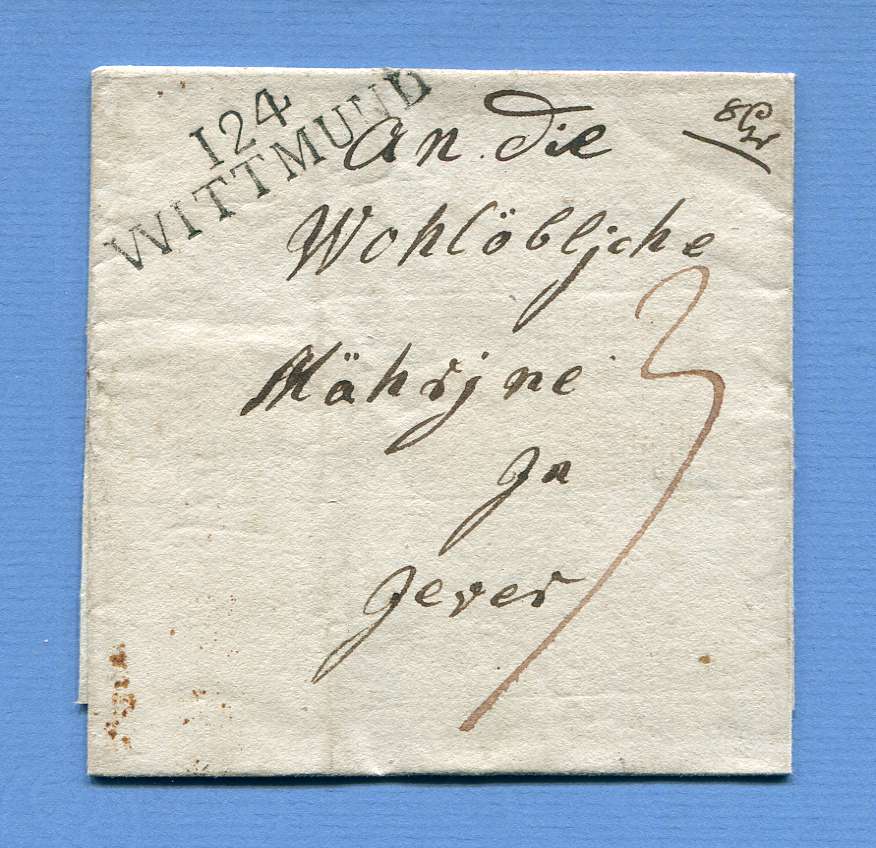 124
WITTMUND
An die
Wohllöbljche
Mährjne
Jn
Jever
3